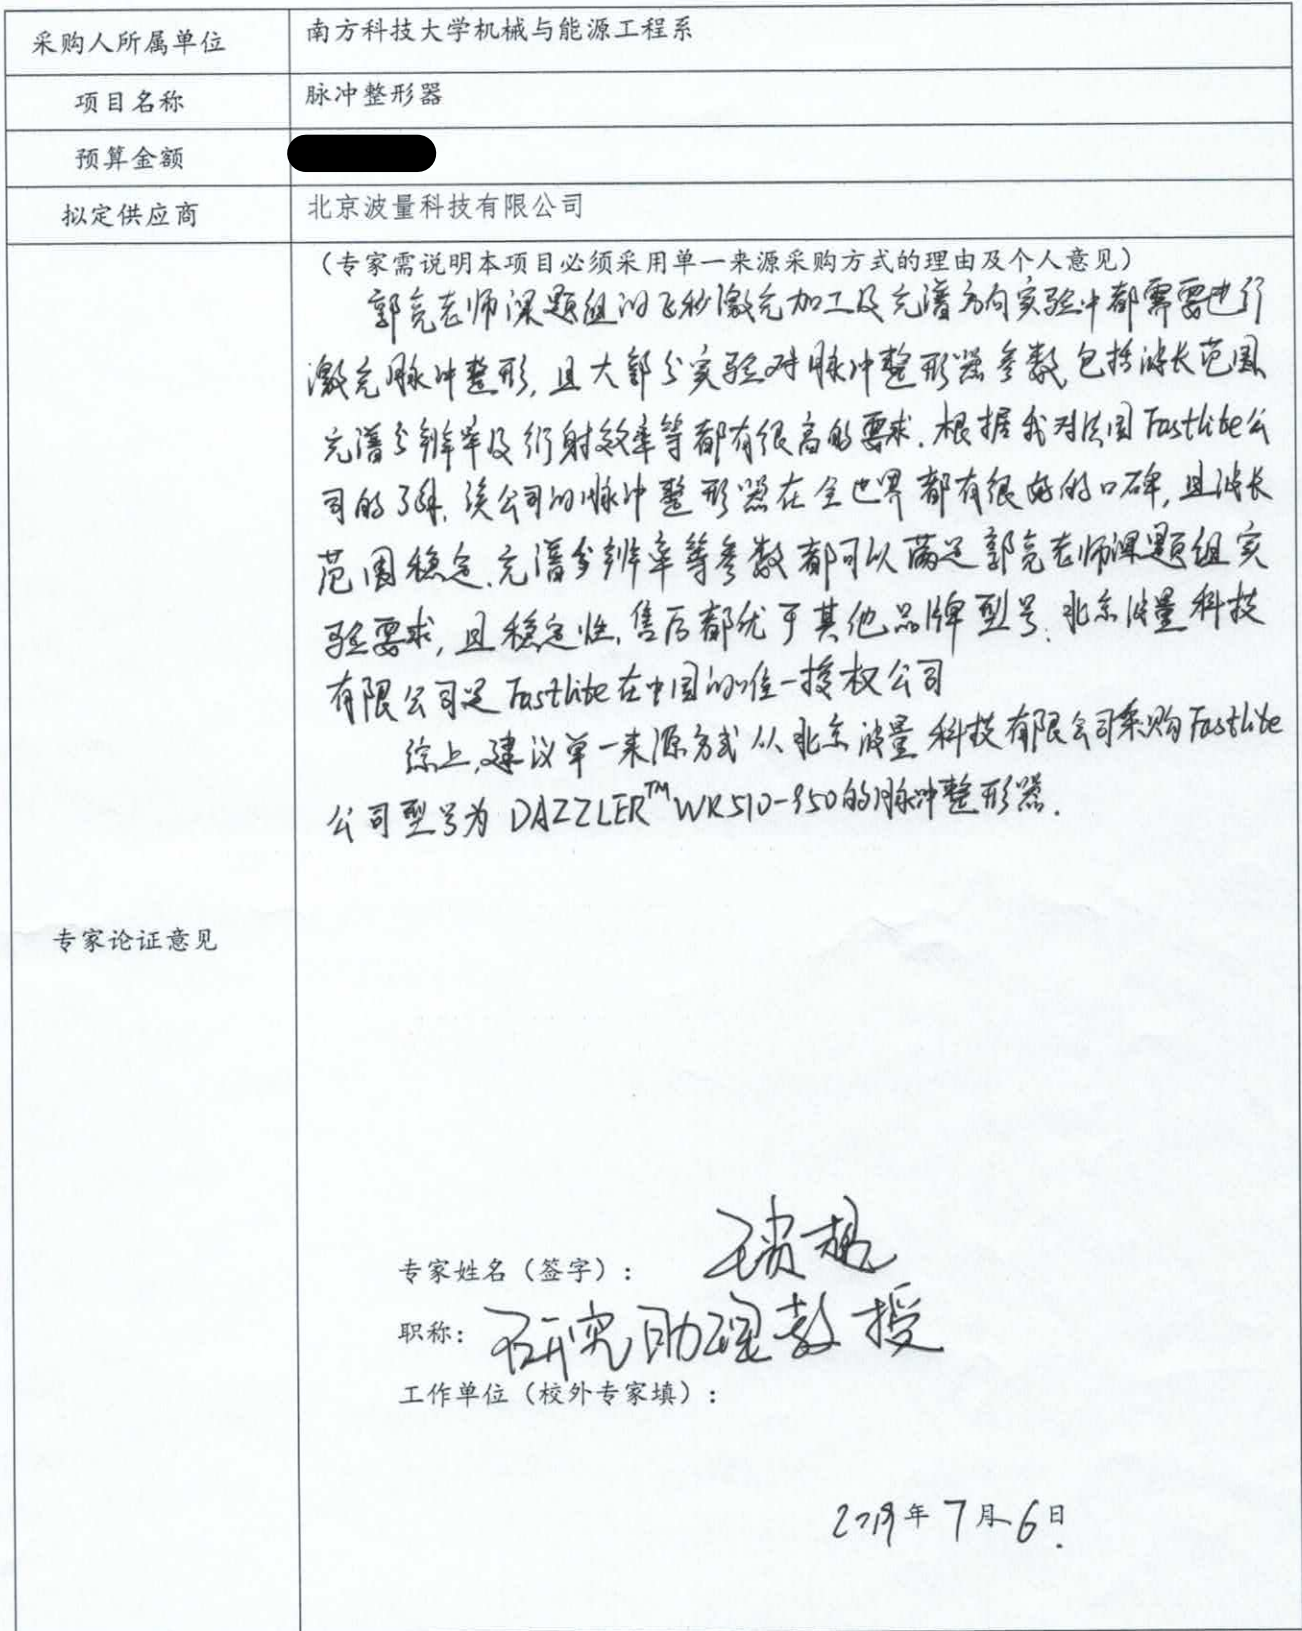 采购人所属单位 南方科技大学机械与能源工程系
项目名称 脉冲整形器
预算金额
拟定供应商 北京波量科技有限公司
（专家需说明本项目必须采用单一来源采购方式的理由及个人意见）
郭亮老师课题组的飞秒激光加工及光谱方向实验中都需要进行
激光脉冲整形，且大部分实验对脉冲整形器参数，包括波长范围、
光谱分辨率及衍射效率等都有很高的要求。根据我对法国Fastlite公
司的了解，该公司的脉冲整形器在全世界都有很好的口碑，且波长
范围稳定、光谱分辨率等参数都可以满足郭亮老师课题组实
验要求，且稳定性、售后都优于其他品牌型号。北京波量科技
有限公司是Fastlite在中国的唯一授权公司
综上，建议单一来源方式从北京波量科技有限公司采购Fastlite
公司型号为DAZZLER™ WR510-950的脉冲整形器。
专家论证意见
专家姓名（签字）：
职称：研究助理教授
工作单位（校外专家填）：
2019年7月6日